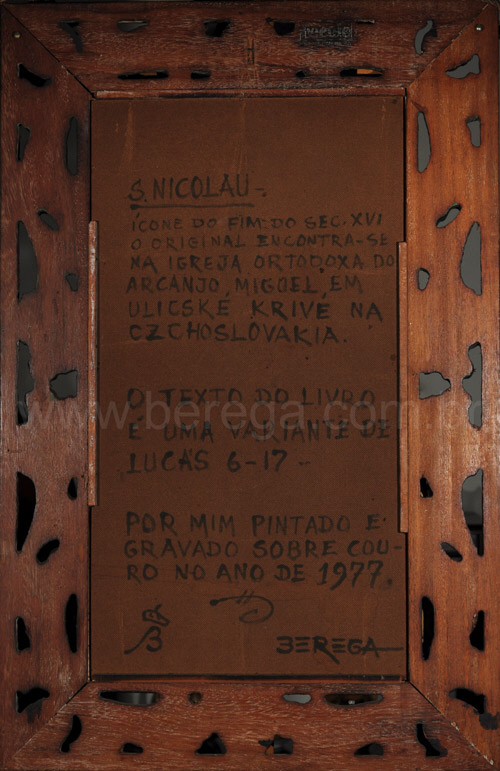 S. NICOLAU-.
ÍCONE DO FIM DO SEC. XVI
O ORIGINAL ENCONTRA-SE
NA IGREJA ORTODOXA DO
ARCANJO, MIGUEL, EM
ULICSKÉ KRIVÉ NA
CZCHOSLOVAKIA.
O TEXTO DO LIVRO
É UMA VARIANTE DE
LUCAS 6-17-
POR MIM PINTADO E
GRAVADO SOBRE COU-
RO NO ANO DE 1977.
BEREGA
www.berega.com.br